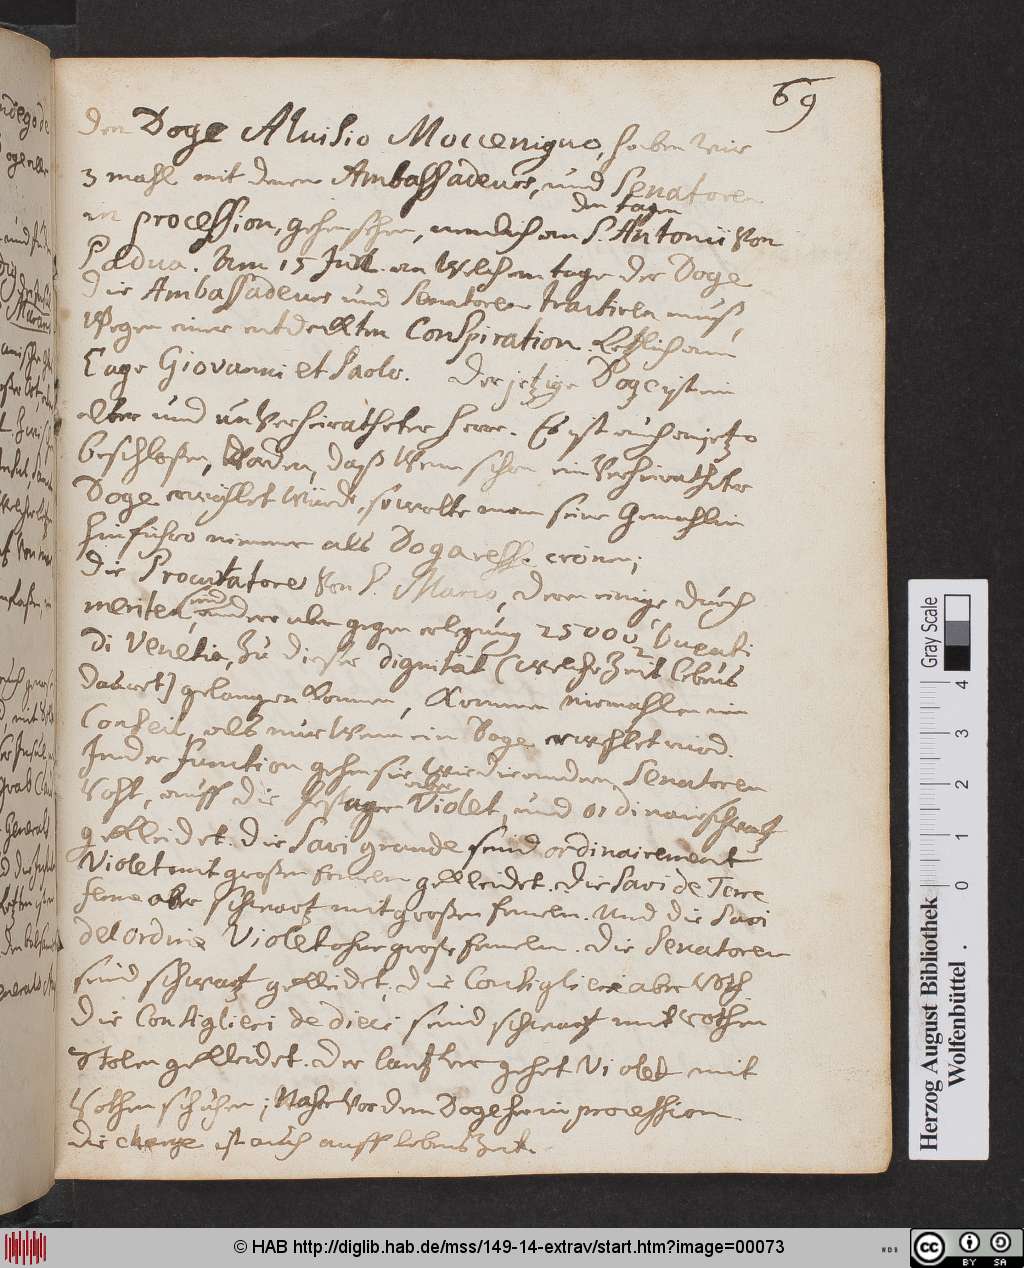 69
den Doge Aluisio Mocceniguo, haben wir
3 mahl mit denen Ambassadeurs, und Senatoren
in procession, gehen sehen, nemlich am S. Antonii von
den tagen
Padua. Am 15 Jull. an welchem tage der Doge
die Ambassadeurs und Senatoren tractiren muß,
wegen einer entdeckten Conspiration. Letzlich am
Tage Giovanni et Paolo. Der jetzige Doge ist ein
alter und unverheiratheter Herr. Es ist auch anjetzo
beschloßen, worden, daß wenn schon ein verheiratheter
Doge erwehlet würde, so wolte man seine Gemahlin
hinführo nimmer als Dogaresse crönen;
die Procuratores von S. Marco, deren einige durch
meriten, und andere aber gegen erlegung 25000 Ducati
di Venetia, zu dieser dignität (welche Zeit lebens
dauret) gelangen können, kommen niemahlen im
Conseil, als nur wenn ein Doge erwehlet wird.
In der function gehen sie wie die andern Senatoren
roht, auff die festage aber Violet, und ordinair schwartz
gekleidet. Die Savi grande seind ordinairement
Violet mit großen ermeln gekleidet. die Savi de Terre
ferme aber schwartz mit großen ermeln. Und die Savi
del ordine Violet ohne große ermeln. Die Senatoren
seind schwartz gekleidet, die Consiglieri aber roth
Die Consiglieri de dieci seind schwartz mit rothen
Stolen gekleidet. Der Cantzler gehet Violet mit
rothen schuhen; Nahe vor dem Doge her in procession.
die charge ist auch auff lebenszeit.
Gray Scale
0 1 2 3 4
Herzog August Bibliothek
Wolfenbüttel
© HAB http://diglib.hab.de/mss/149-14-extrav/start.htm?image=00073
CC BY SA